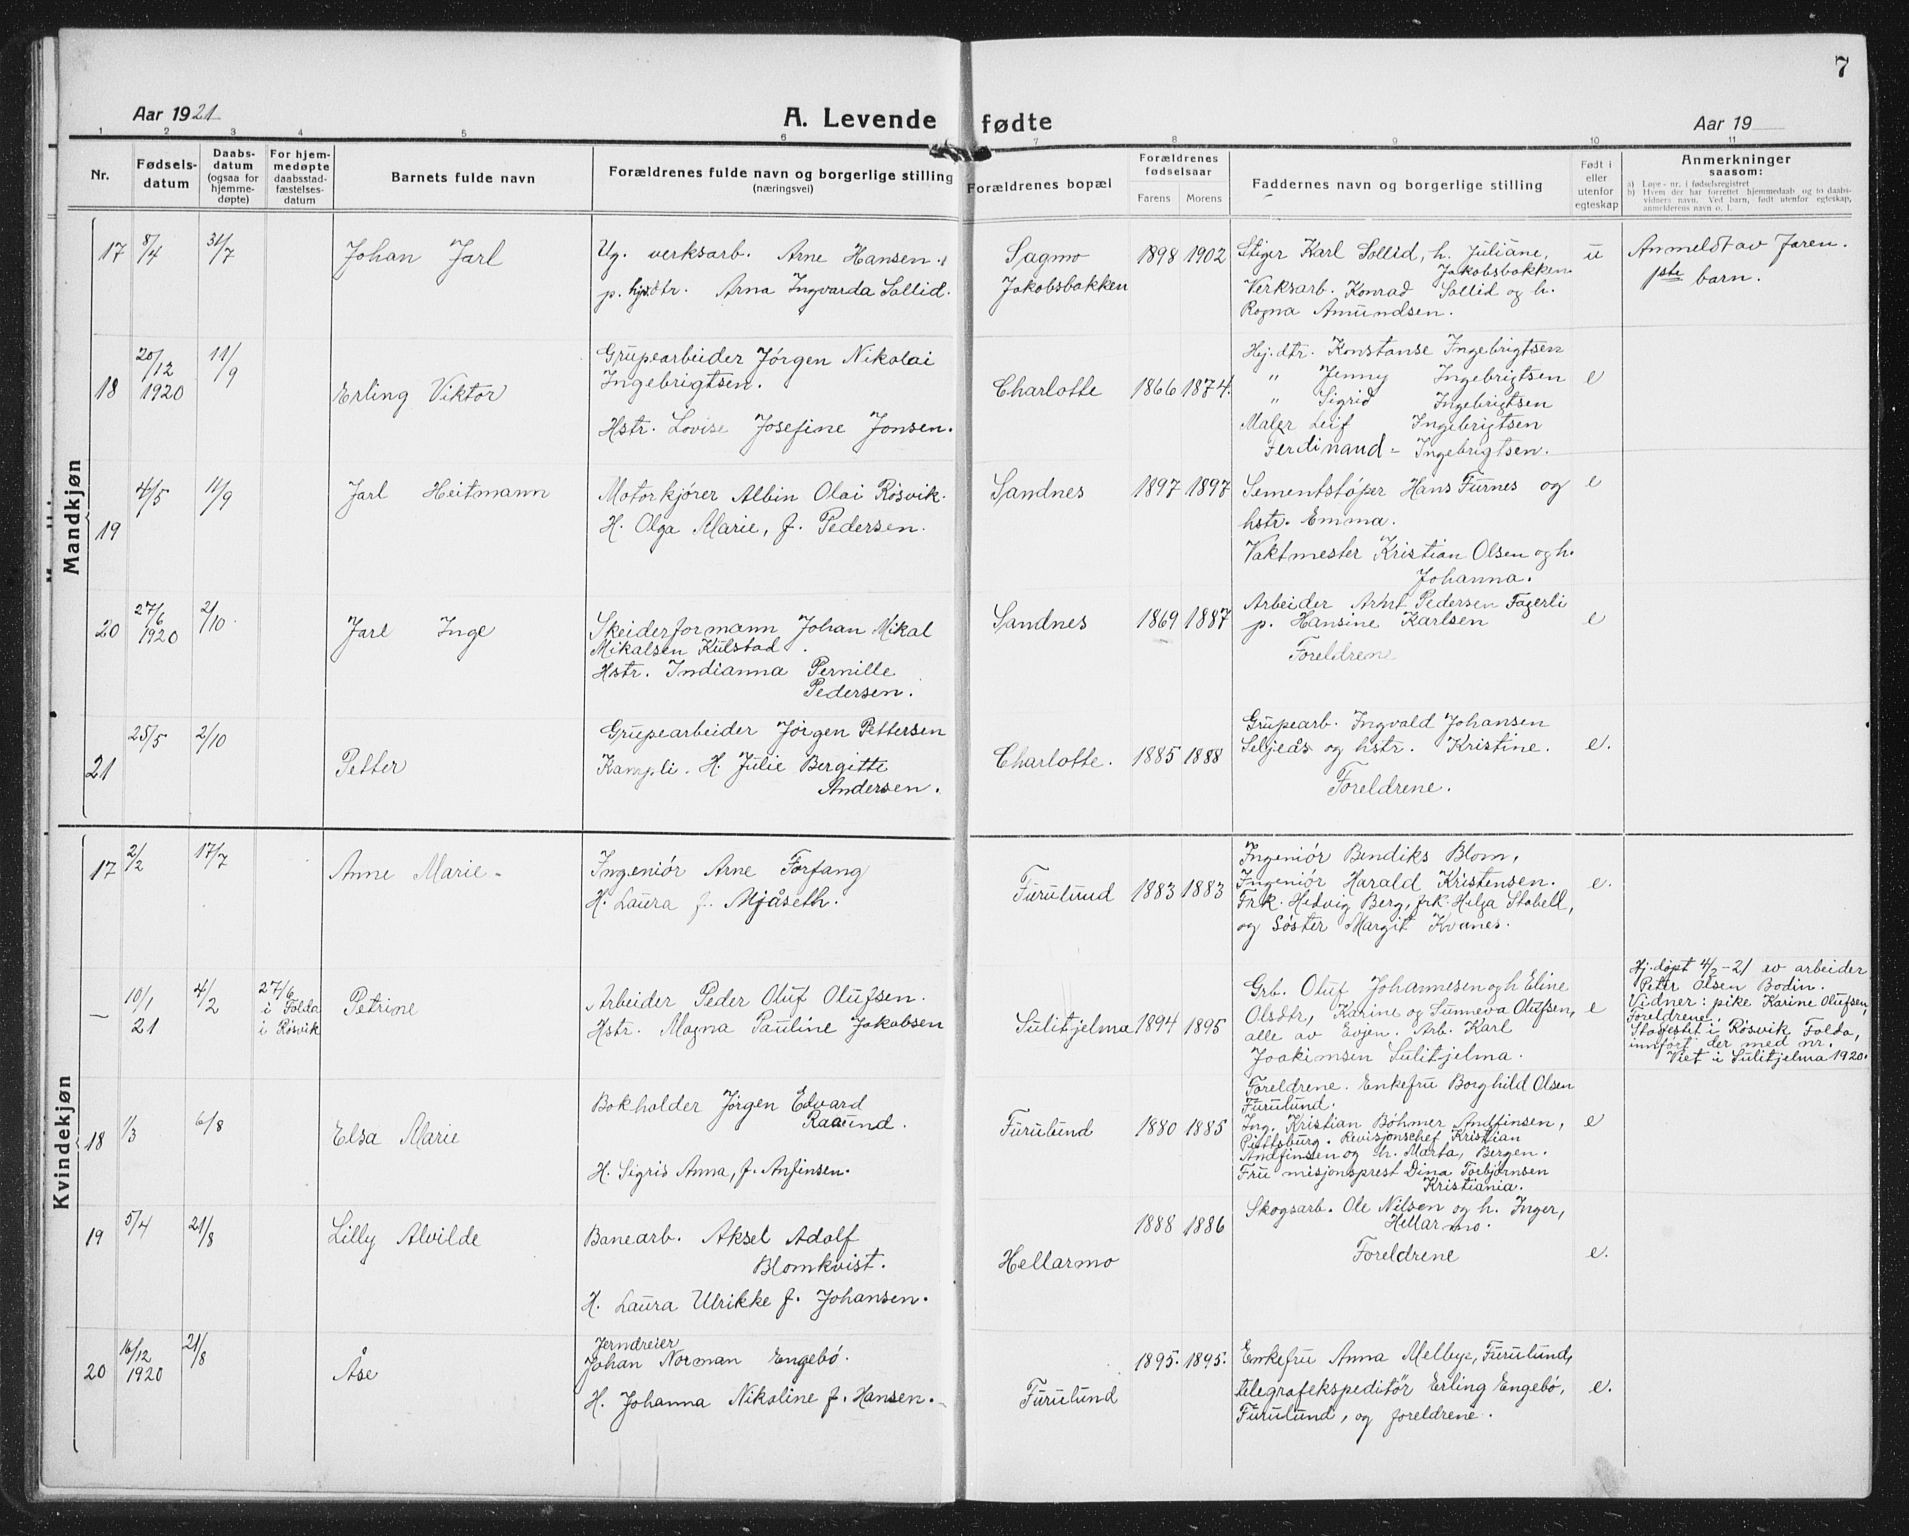 7
Aar 1921
A. Levende fødte
Aar 19
1 2 3 4 5 6 7 8 9 10 11
Nr.
Fødsels-
datum
Daabs-
datum
(ogsaa for
hjemme-
døpte)
For hjem-
medøpte
daabsstad-
fæstelses-
datum
Barnets fulde navn
Forældrenes fulde navn og borgerlige stilling
(næringsvei)
Forældrenes bopæl
Forældrenes
fødselsaar
Farens Morens
Faddernes navn og borgerlige stilling
Født i
eller
utenfor
egteskap
Anmerkninger
saasom:
a) Løpe-nr. i fødselsregistret
b) Hvem der har forrettet hjemmedaab og to daabs-
vidners navn. Ved barn, født utenfor egteskap,
anmelderens navn o. l.
Mandkjøn
17 8/4 31/7 Johan Jarl
Ug. verksarb. Arne Hansen.
p. hjdtr. Arna Ingvarda Sollid.
Sagmo
Jakobsbakken
1898 1902
Stiger Karl Sollid, h. Juliane,
Jakobsbakken
Verksarb. Konrad Sollid og h.
Ragna Amundsen.
u
Anmeldt av faren.
1ste barn.
18 20/12 1920 11/9 Erling Viktor
Grupearbeider Jörgen Nikolai
Ingebrigtsen.
Hstr. Lovise Josefine Jonsen.
Charlotte
1866 1874.
Hj.dtr. Konstanse Ingebrigtsen
" Jenny Ingebrigtsen
" Sigrid Ingebrigtsen
Maler Leif Ingebrigtsen
Ferdinand - Ingebrigtsen.
e
19 4/5 11/9 Jarl Heitmann
Motorkjörer Albin Olai Rösvik.
H. Olga Marie, f. Pedersen.
Sandnes
1897 1897
Sementstöper Hans Furnes og
hstr. Emma.
Vaktmester Kristian Olsen og h.
Johanna.
e
20 27/6 1920 2/10 Jarl Inge
Skeiderformann Johan Mikal
Mikalsen Kulstad.
Hstr. Indianna Pernille
Pedersen.
Sandnes
1869 1887
Arbeider Arnt Pedersen Fagerli
p. Hansine Karlsen
Foreldrene
e
21 25/5 2/10 Petter
Grupearbeider Jörgen Pettersen
Kampli. H. Julie Bergitte
Andersen.
Charlotte.
1885 1888
Grupearb. Ingvald Johansen
Seljeås og hstr. Kristine.
Foreldrene.
e.
Kvindekjøn
17 2/2 17/7 Anne Marie -
Ingeniör Arne Forfang
H. Laura f. Mjåseth.
Furulund
1883 1883
Ingeniör Bendiks Blom,
Ingeniör Harald Kristensen.
Frk. Hedvig Berg, frk. Helga Stabell,
og Söster Margit Kvanes.
e.
— 10/1 21 4/2 27/6
i Folda
i Rösvik
Petrine
Arbeider Peder Oluf Olufsen.
Hstr. Magna Pauline Jakobsen
Sulitjelma
1894 1895
Grb. Oluf Johannesen og h Eline
Olsdtr, Karine og Sunneva Olufsen,
alle av Evjen. Arb. Karl
Joakimsen Sulitjelma.
e
Hj.döpt 4/2-21 av arbeider
Peter Olsen Bodin.
Vidner: pike Karine Olufsen,
Foreldrene.
Stadfestet i Rösvik Folda,
innfört der med nr.
Viet i Sulitjelma 1920.
18 1/3 6/8 Elsa Marie
Bokholder Jörgen Edvard
Raaund.
H. Sigris Anna, f. Anfinsen.
Furulund
1880 1885
Foreldrene. Enkefru Borghild Olsen
Furulund.
Ing. Kristian Böhmer Andfinsen,
Pittsburg. Revisjonschef Kristian
Andfinsen og h. Marta, Bergen.
Fru misjonsprest Dina Torbjörnsen
Kristiania.
e
19 5/4 21/8 Lilly Alvilde
Banearb. Aksel Adolf
Blomkvist.
H. Laura Ulrikke f. Johansen.
Hellarmo
1888 1886
Skogsarb. Ole Nilsen og h. Inger,
Hellarmo.
Foreldrene
e.
20 16/12 1920 21/8 Åse
Jerndreier
Johan Norman Engebö.
H. Johanna Nikoline f. Hansen.
Furulund
1895. 1895.
Enkefru Anna Melbye, Furulund,
telegrafekspeditör Erling Engebö,
Furulund, og foreldrene.
e.